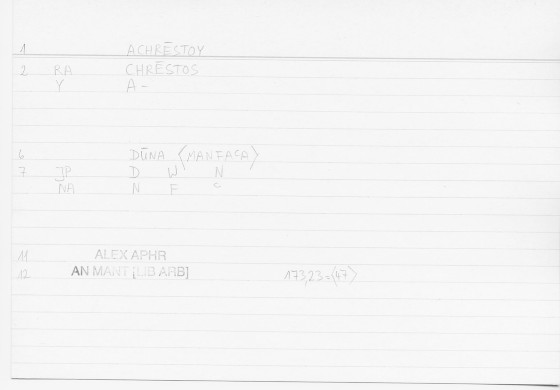 1 ACHRĒSTOY
2 RA CHRĒSTOS
Y A-
6 DŪNA ⟨MANFAʿA⟩
7 JP D W N
NA N F ʿ
11 ALEX APHR
12 AN MANT [LIB ARB] 173,23 ⟨47⟩